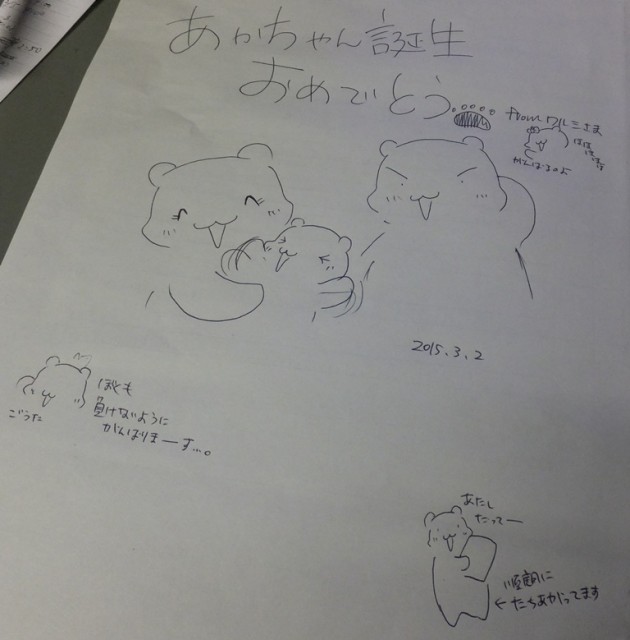 あかちゃん誕生
おめでとう
from クルミさま
がんばるのよ
2015.3.2
ごうた
ぼくも
負けないように
がんばりまーす…。
あたし
だってー
順調に
←たちあがってます